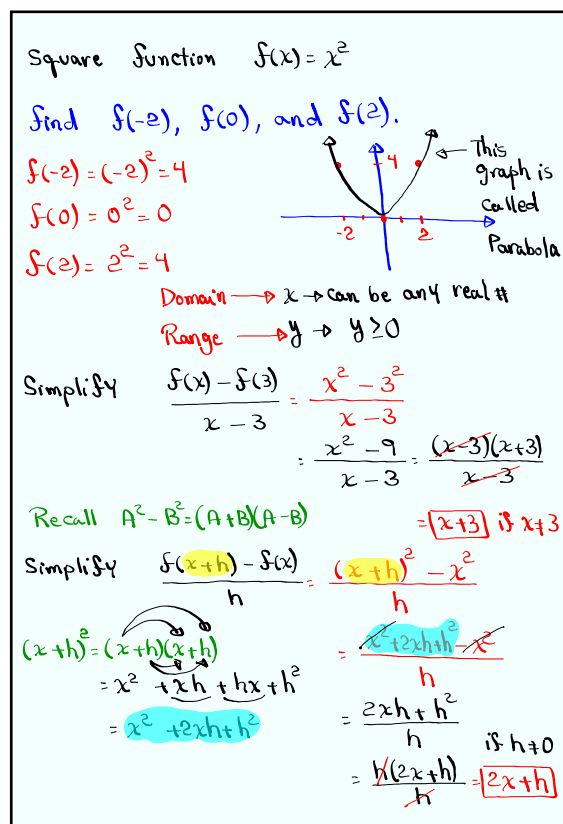 Square function f(x) = x²
find f(-2), f(0), and f(2).
f(-2) = (-2)² = 4
f(0) = 0² = 0
f(2) = 2² = 4
4
-2 2
This
graph is
called
Parabola
Domain → x → can be any real #
Range → y → y ≥ 0
Simplify (f(x) - f(3))/(x - 3) = (x² - 3²)/(x - 3)
= (x² - 9)/(x - 3) = ((x-3)(x+3))/(x-3)
Recall A² - B² = (A+B)(A-B)
= x+3 if x≠3
Simplify (f(x+h) - f(x))/h = ((x+h)² - x²)/h
(x+h)² = (x+h)(x+h)
= x² + xh + hx + h²
= x² + 2xh + h²
= (x² + 2xh + h² - x²)/h
= (2xh + h²)/h
if h≠0
= (h(2x+h))/h = 2x+h